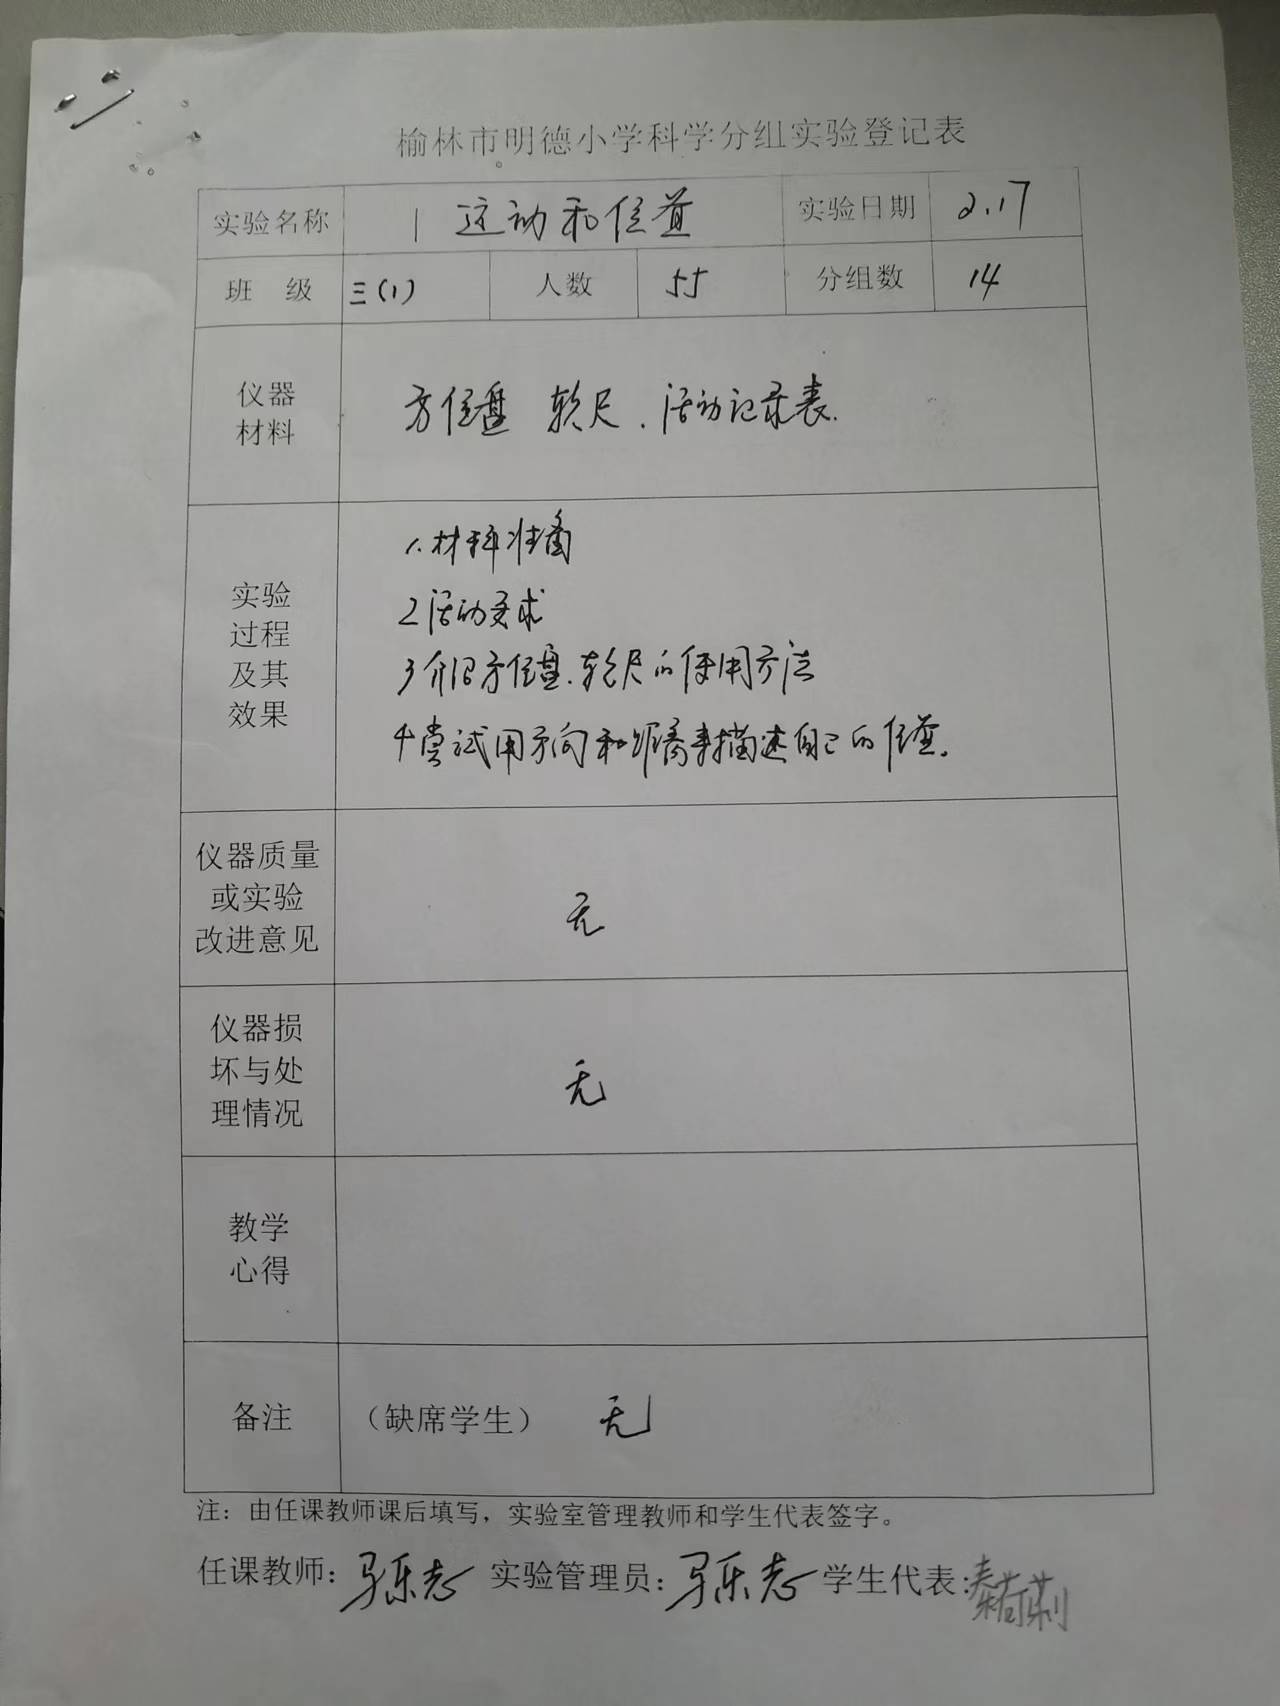 榆林市明德小学科学分组实验登记表
实验名称 1 运动和位置 实验日期 2.17
班 级 三(1) 人数 55 分组数 14
仪器
材料
方位盘 软尺.活动记录表.
实验
过程
及其
效果
1.材料准备
2活动要求
3介绍方位盘.软尺的使用方法
4尝试用方向和距离来描述自己的位置.
仪器质量
或实验
改进意见
无
仪器损
坏与处
理情况
无
教学
心得
备注 (缺席学生) 无
注：由任课教师课后填写，实验室管理教师和学生代表签字。
任课教师:马乐志 实验管理员:马乐志 学生代表: